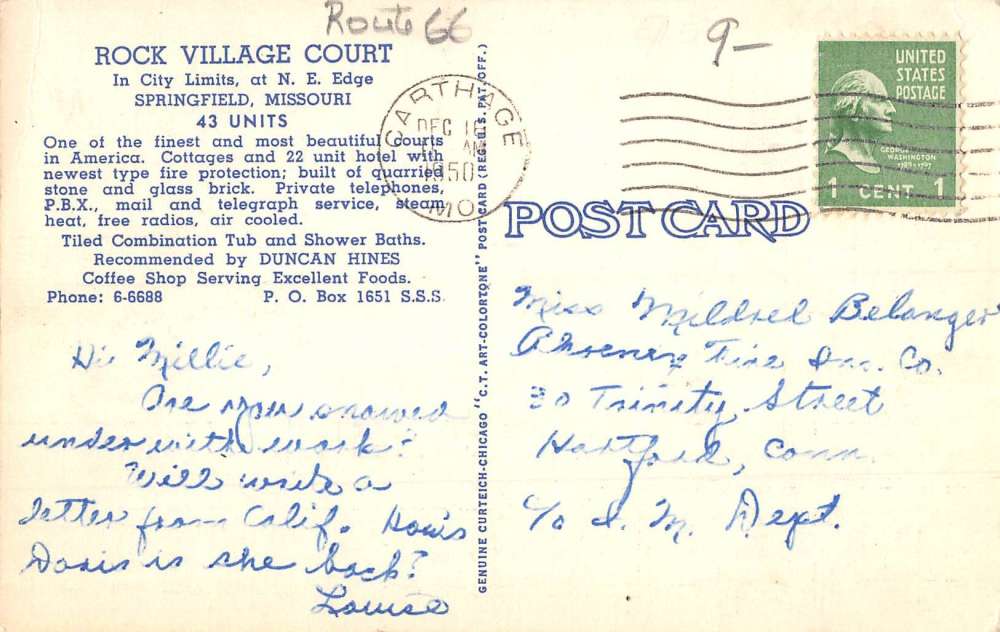 Route 66
9-
ROCK VILLAGE COURT
In City Limits, at N. E. Edge
SPRINGFIELD, MISSOURI
43 UNITS
One of the finest and most beautiful courts
in America. Cottages and 22 unit hotel with
newest type fire protection; built of quarried
stone and glass brick. Private telephones,
P.B.X., mail and telegraph service, steam
heat, free radios, air cooled.
Tiled Combination Tub and Shower Baths.
Recommended by DUNCAN HINES
Coffee Shop Serving Excellent Foods.
Phone: 6-6688 P. O. Box 1651 S.S.S.
Hi Millie,
Are you snowed
under with work?
Will write a
letter from Calif. How's
Doris is she back?
Louise
GENUINE CURTEICH-CHICAGO "C.T. ART-COLORTONE" POST CARD (REG. U.S. PAT. OFF.)
CARTHAGE
DEC 16
AM
1950
MO.
UNITED
STATES
POSTAGE
GEORGE
WASHINGTON
1789-1797
1 CENT 1
POST CARD
Miss Mildred Belanger
Phoenix Fire Ins. Co.
30 Trinity Street
Hartford, Conn.
c/o I. M. Dept.